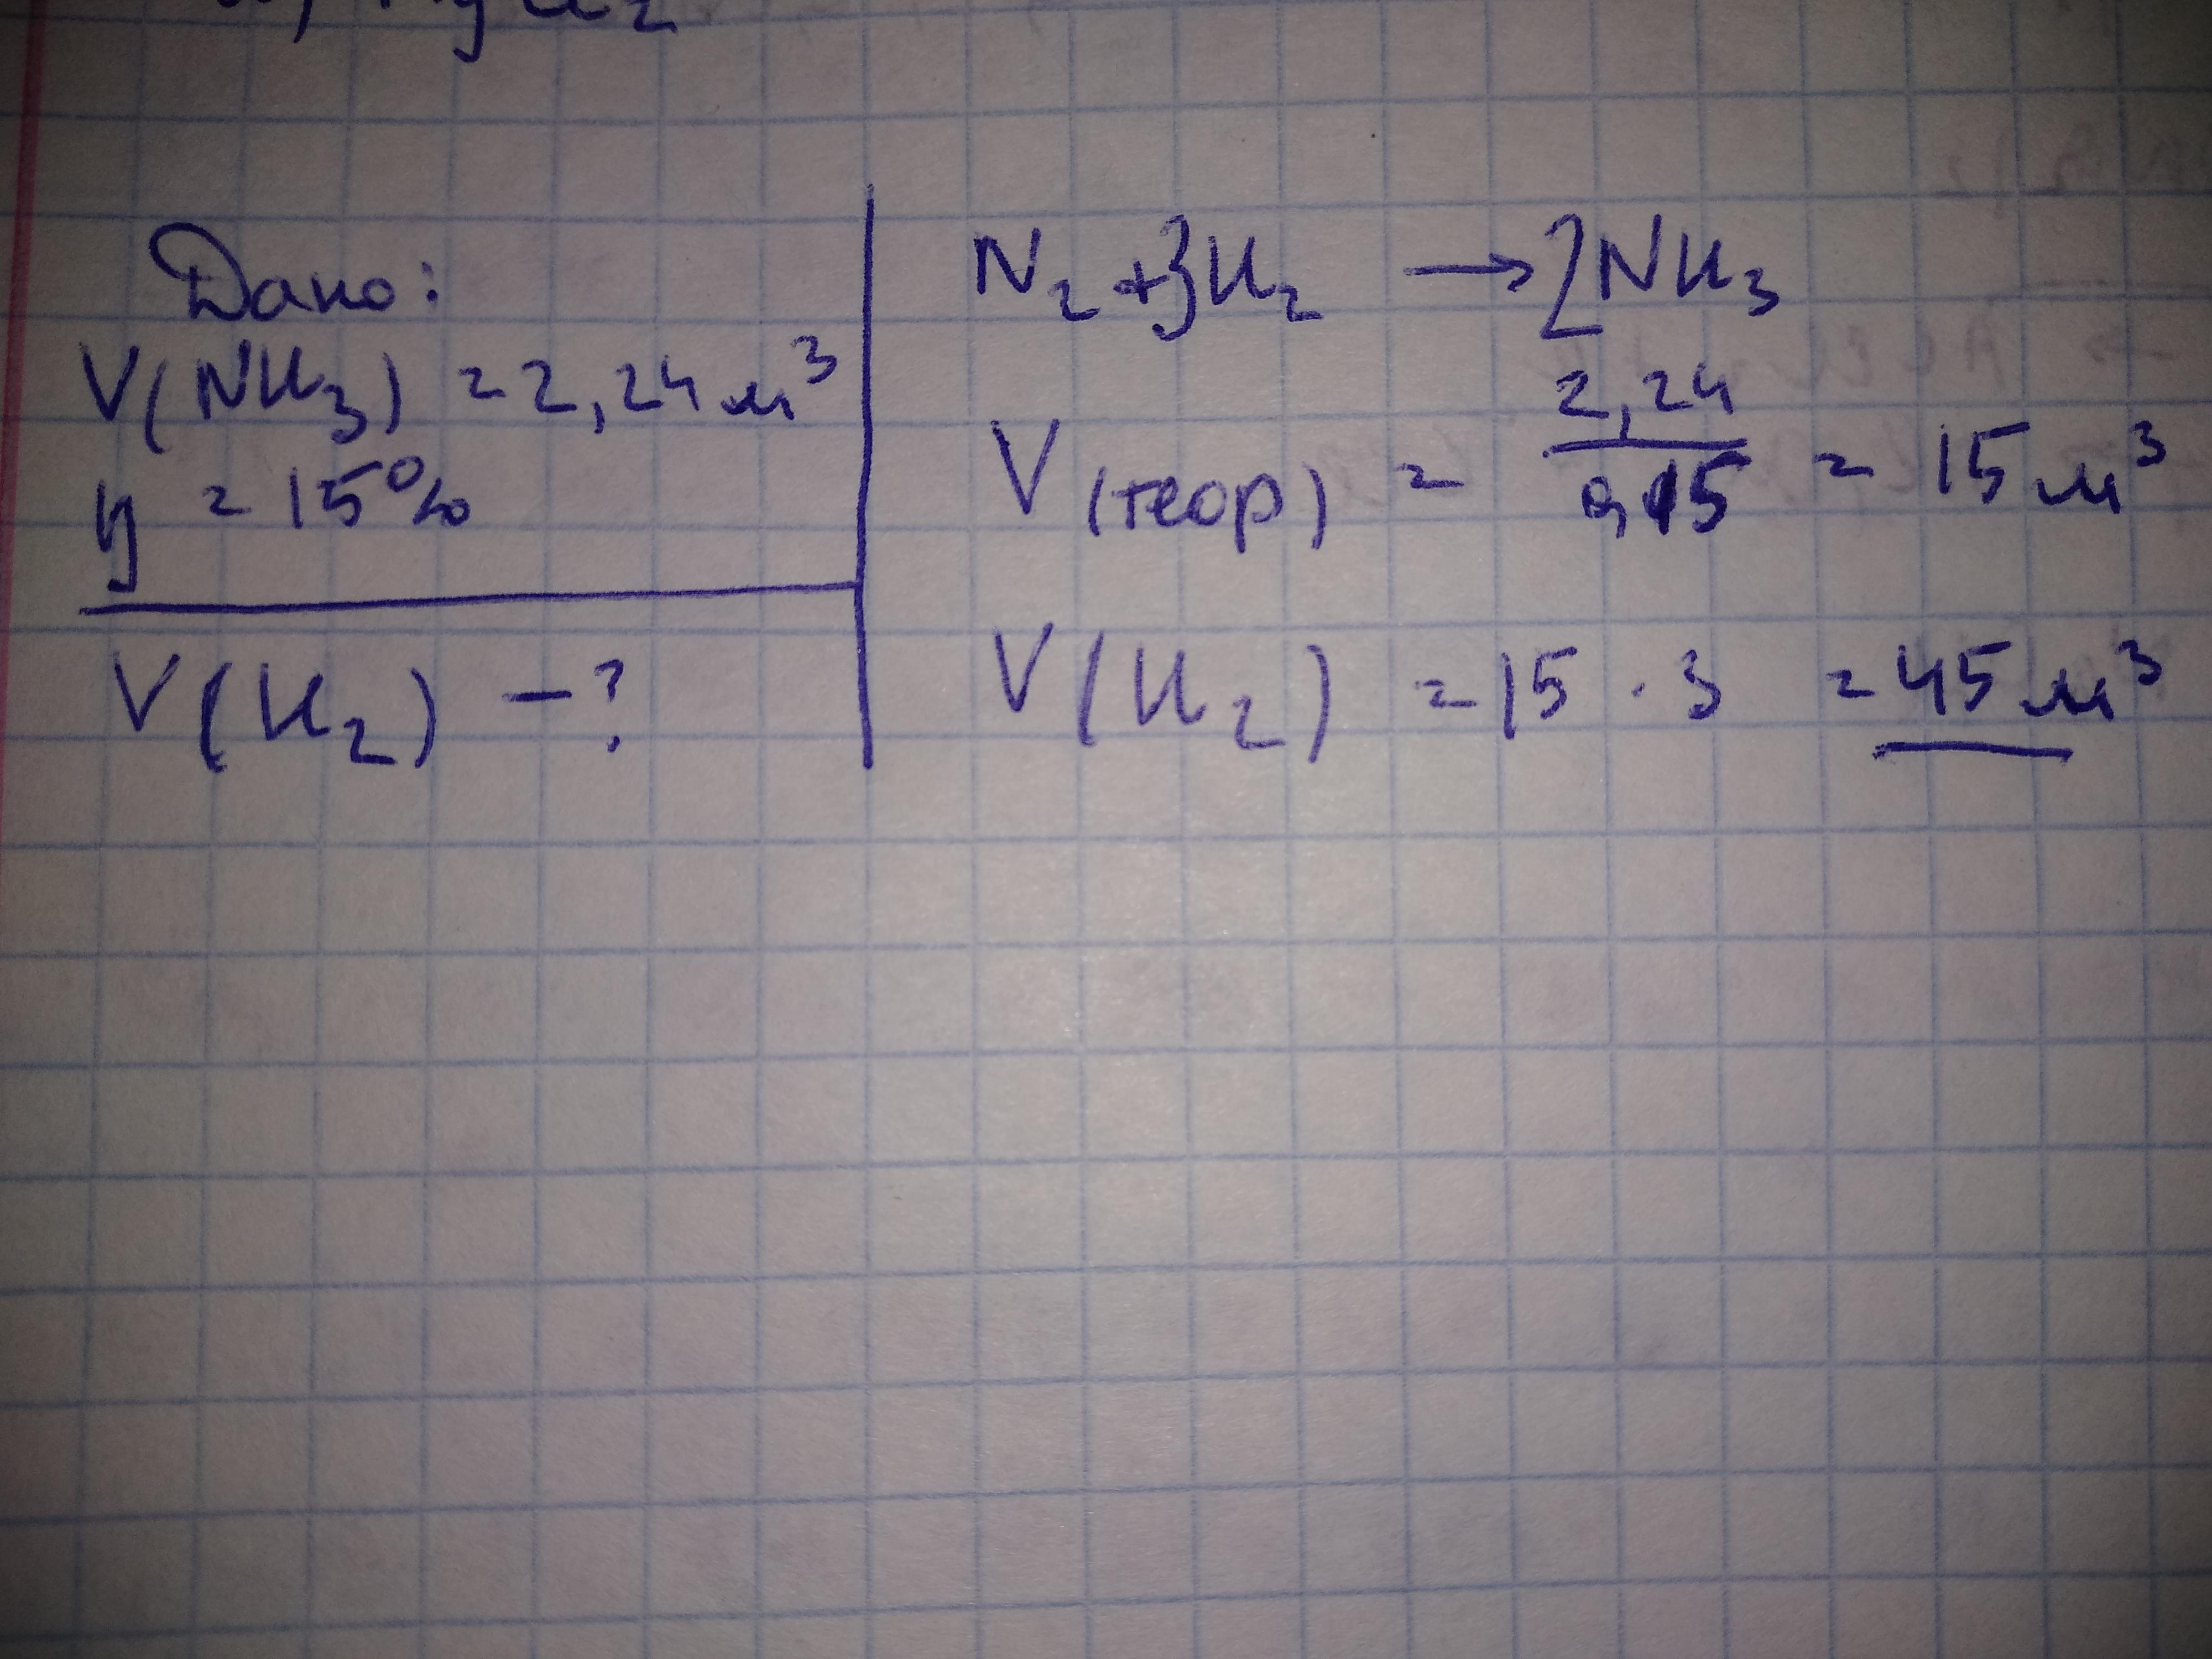 Дано:
V(NH₃) = 2,24 м³
η = 15%
V(H₂) – ?
N₂ + 3H₂ → 2NH₃
V(теор) = 2,24 / 0,15 = 15 м³
V(H₂) = 15 · 3 = 45 м³